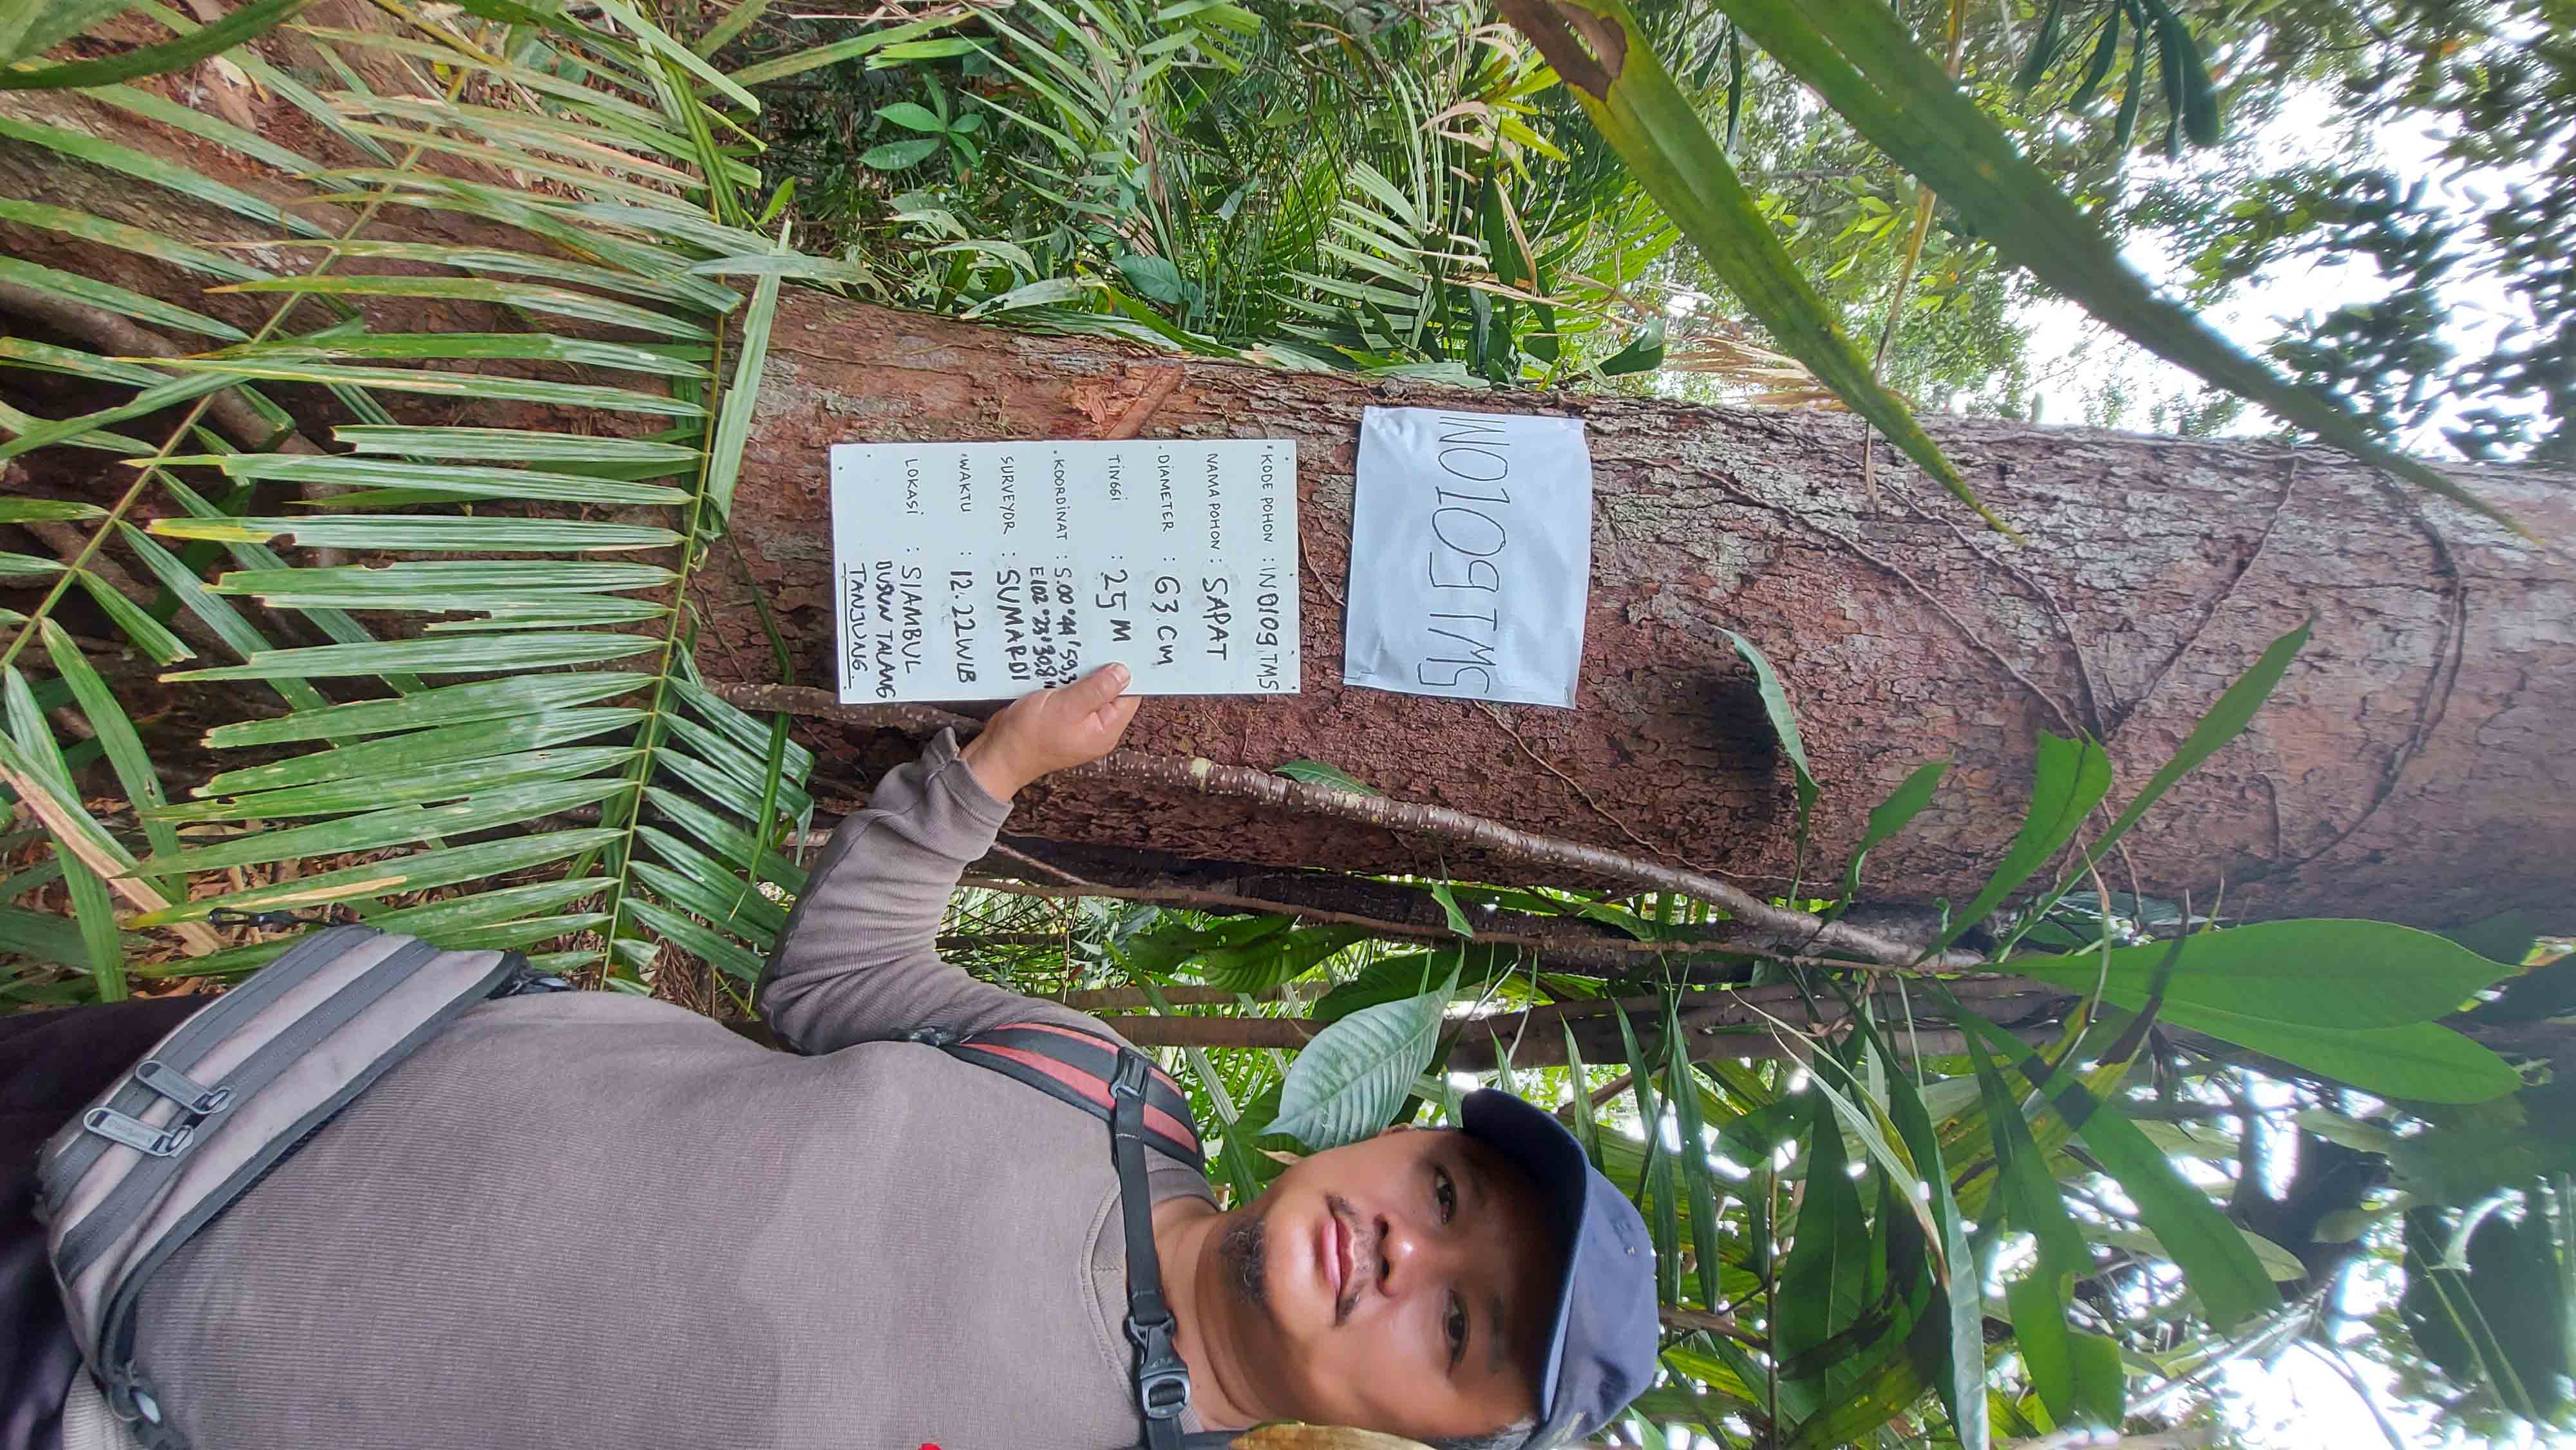 IN0109TMS
KODE POHON : IN0109TMS
NAMA POHON : SAPAT
DIAMETER : 63 CM
TINGGI : 25 M
KOORDINAT : S.00°44'59,3
E102°23'30,8"
SURVEYOR : SUMARDI
WAKTU : 12.22 WIB
LOKASI : SIAMBUL
DUSUN TALANG
TANJUNG.